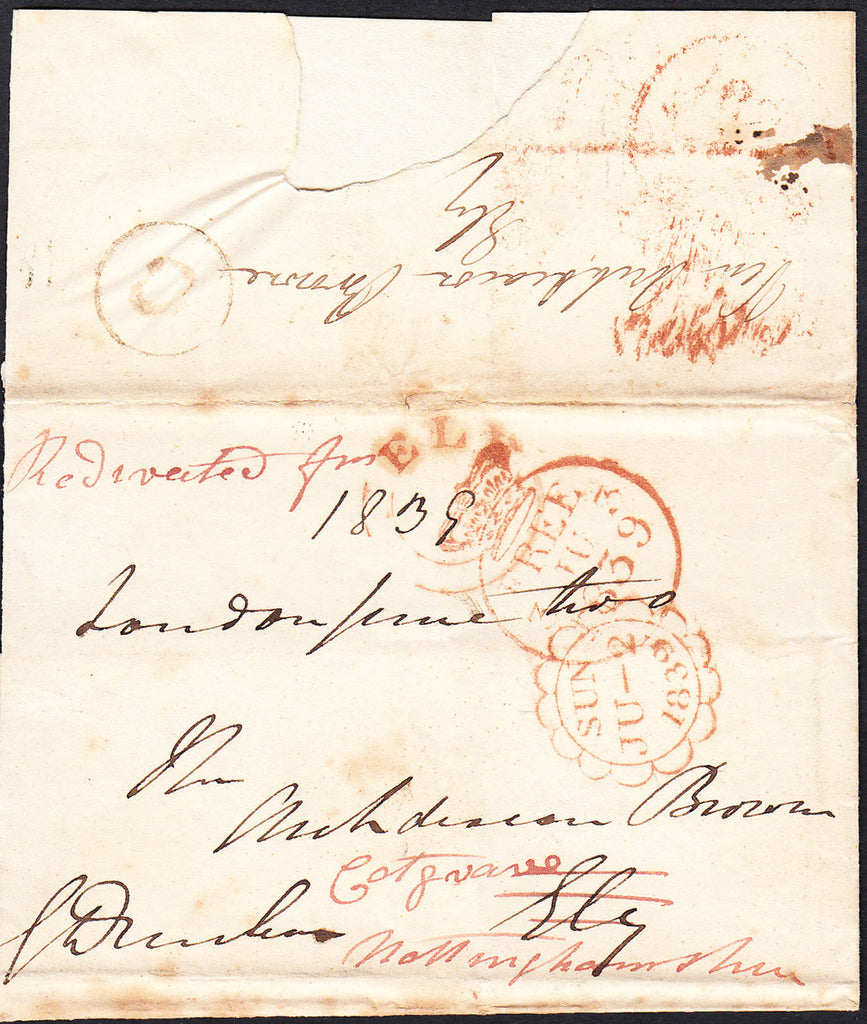 Ven Archdeacon Browne
Ely
C
Redirected fm
ELY
1839
London June two
FREE
3 JU 3
1839
SUN
JU-2
1839
The
Archdeacon Browne
Cotgrave
Ely
Nottinghamshire